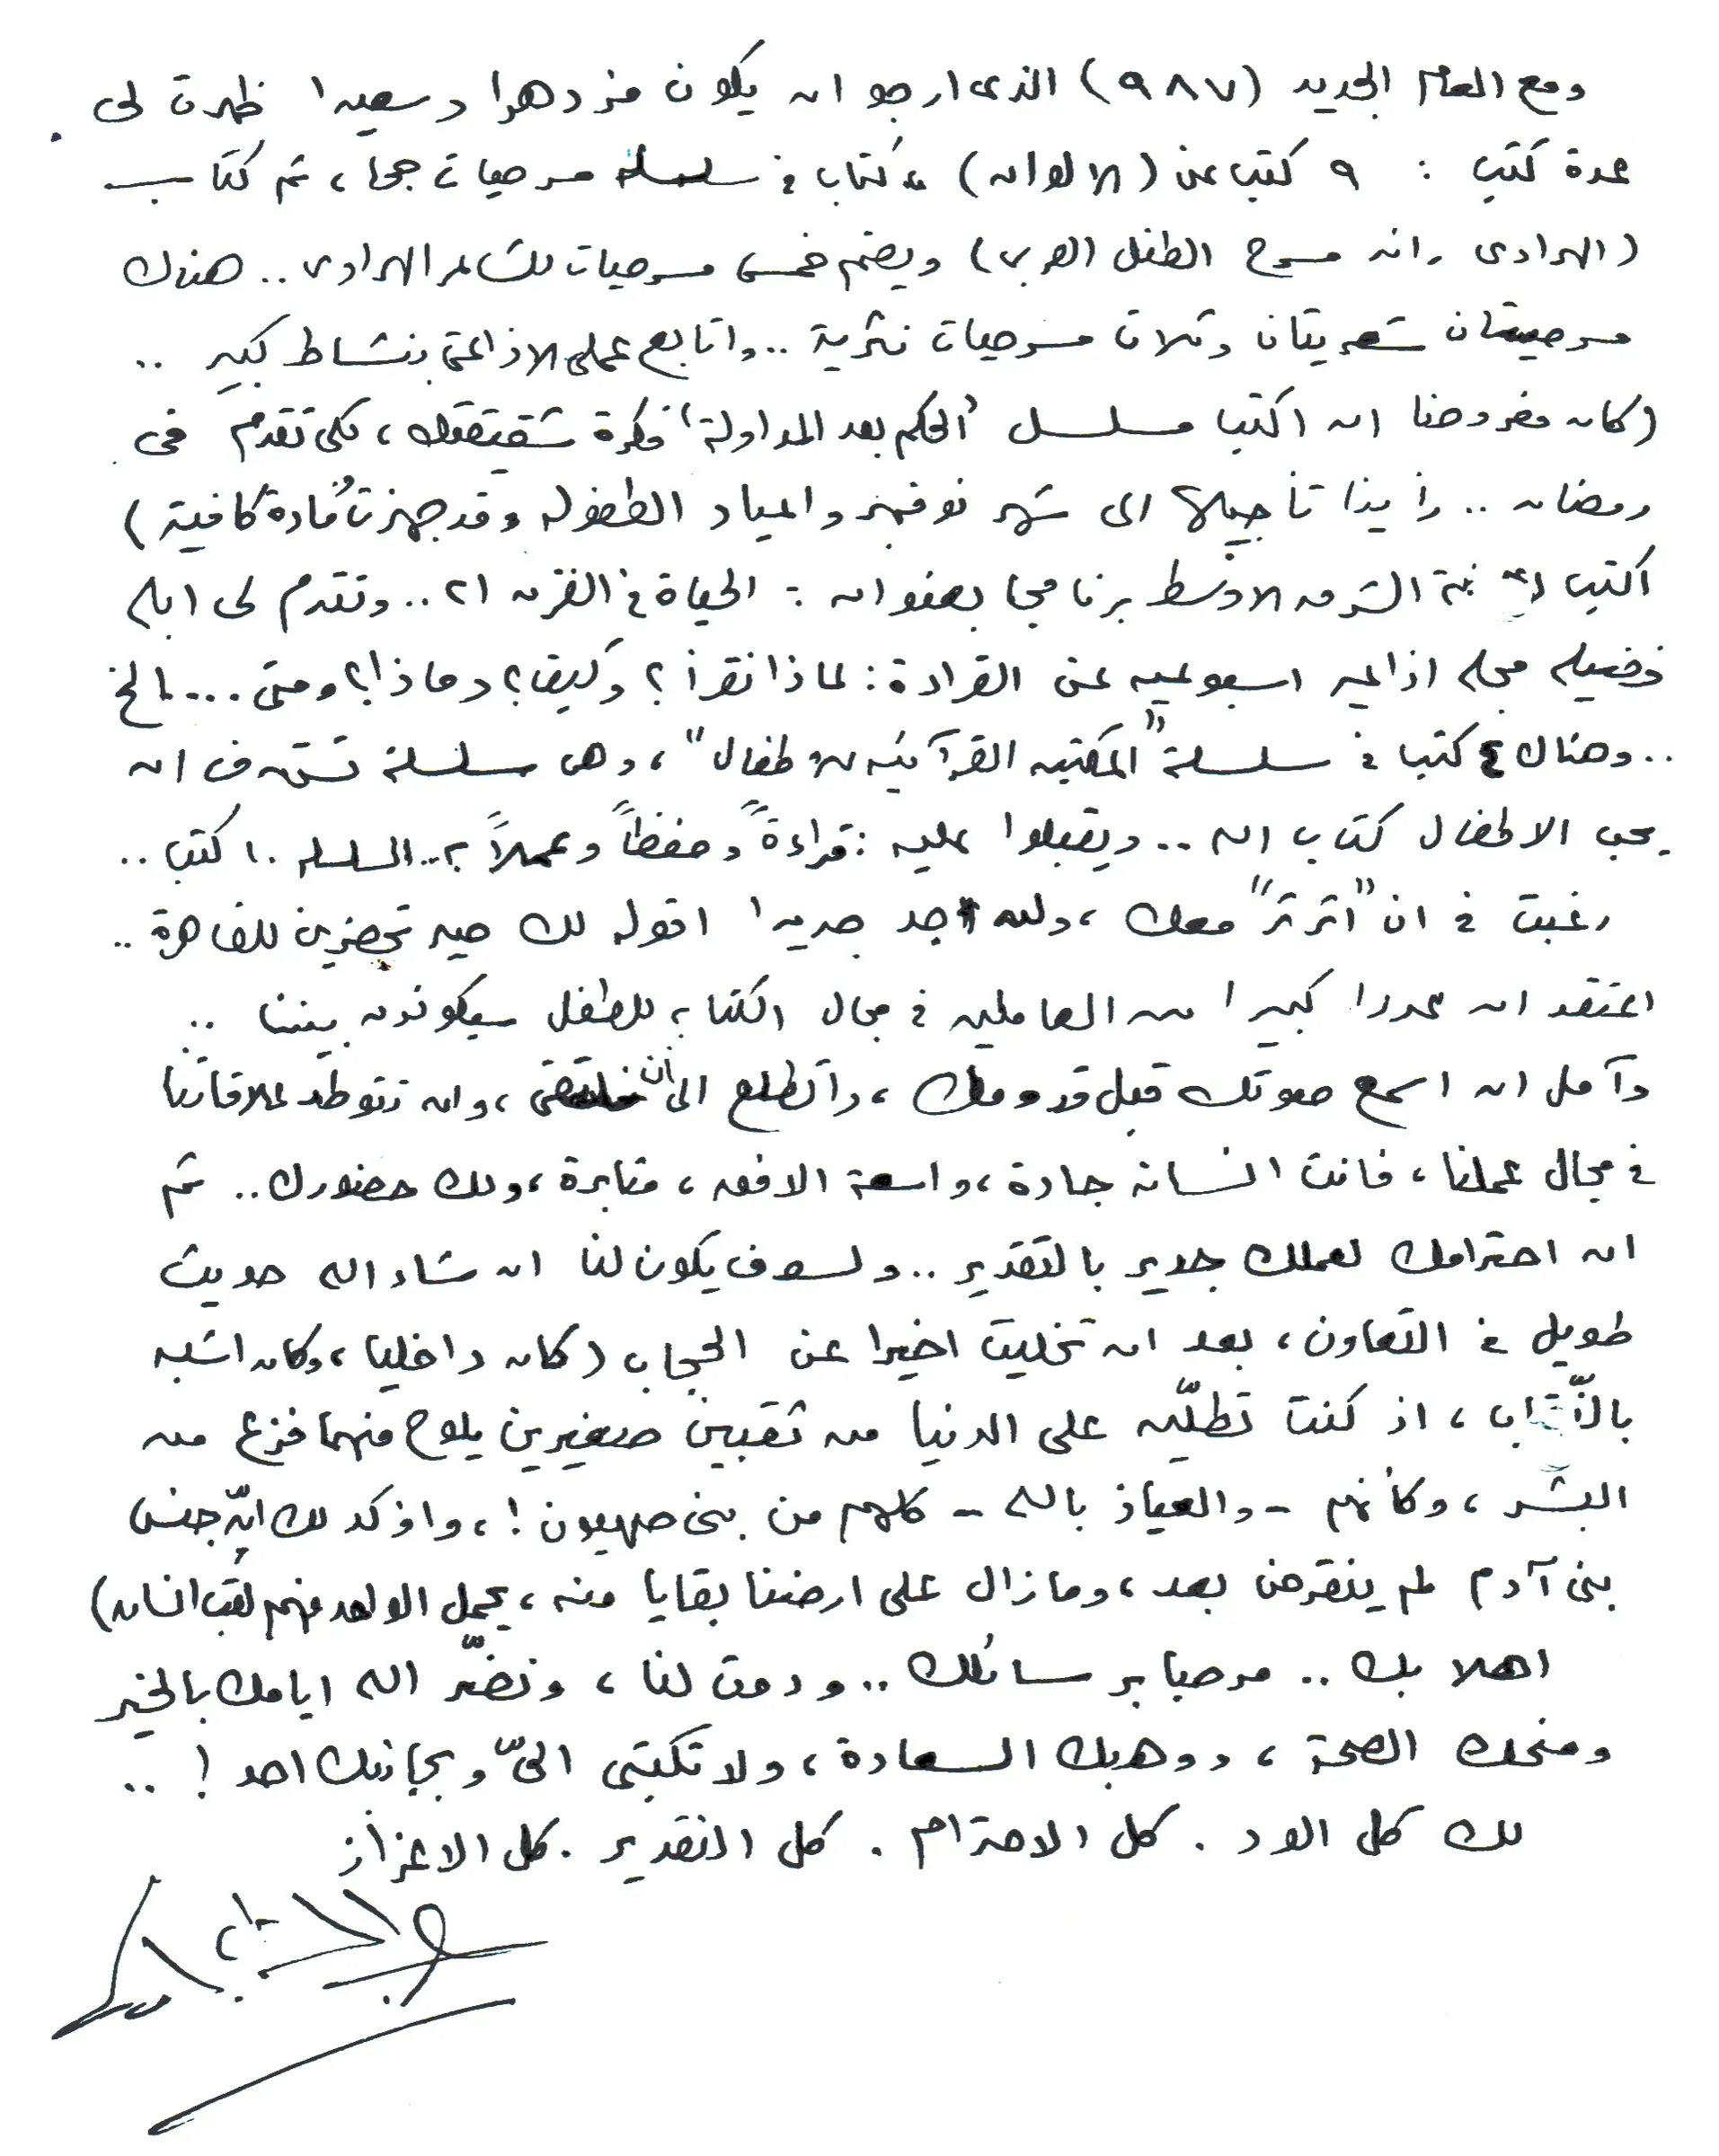 ومع العام الجديد (٩٨٧) الذى ارجو ان يكون مزدهرا وسعيدا ظهرت لى
عدة كتب : ٩ كتب عن (الالوان) ، كتاب فى سلسلة مسرحيات جحا ، ثم كتاب
(الهراوى رائد مسرح الطفل العربى) ويضم خمس مسرحيات للشاعر الهراوى .. هناك
مسرحيتان شعريتان وثلاث مسرحيات نثرية .. واتابع عملى الاذاعى بنشاط كبير ..
(كان مفروضا ان اكتب مسلسل "الحكم بعد المداولة" فكرة شقيقتك ، لكى تقدم فى
رمضان .. رأينا تأجيلها الى شهر نوفمبر واعياد الطفولة وقد جهزت مادة كافية)
اكتب لاذاعة الشرق الاوسط برنامجا بعنوان : الحياة فى القرن ٢١ .. وتقدم لى ابله
فضيله مجله اذاعيه اسبوعيه عن القراءة : لماذا نقرأ ؟ وكيف ؟ وماذا ؟ ومتى ... الخ
.. وهناك ٤ كتب فى سلسلة "المكتبه القرآنيه للاطفال" ، وهى سلسلة تستهدف ان
يحب الاطفال كتاب الله .. ويقبلوا عليه : قراءةً وحفظاً وعملاً .. السلسله ١٠ كتب ..
رغبت فى ان "اثرثر" معك ، ولن اجد جديدا اقوله لك حين تحضرين للقاهرة ..
اعتقد ان عددا كبيرا من العاملين فى مجال الكتابه للطفل سيكونون بيننا ..
وآمل ان اسمع صوتك قبل قدومك ، واتطلع الى ان نلتقى ، وان تتوطد علاقاتنا
فى مجال عملنا ، فانت انسانه جادة ، واسعة الافق ، مثابرة ، ولك حضورك .. ثم
ان احترامك لعملك جدير بالتقدير .. ولسوف يكون لنا ان شاء الله حديث
طويل فى التعاون ، بعد ان تخليت اخيرا عن الحجاب (كان داخليا ، وكان اشبه
بالنّقاب ، اذ كنت تطلّين على الدنيا من ثقبين صغيرين يلوح منهما فزع من
البشر ، وكأنهم - والعياذ بالله - كلهم من بنى صهيون ! ، واؤكد لك انّ جنس
بنى آدم لم ينقرض بعد ، ومازال على ارضنا بقايا منه ، يحمل الواحد منهم لقب انسان)
اهلا بك .. مرحبا برسائلك .. ودمت لنا ، ونضّر الله ايامك بالخير
ومنحك الصحة ، ووهبك السعادة ، ولا تكتبى الىّ وبجانبك احد ! ..
لك كل الود . كل الاحترام . كل التقدير . كل الاعزاز